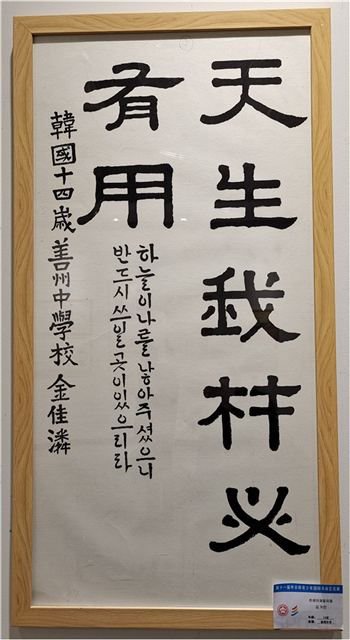 天生我材必
有用
하늘이나를낳아주셨으니
반드시쓰일곳이있으리라
韓國十四歲善州中學校 金佳潾